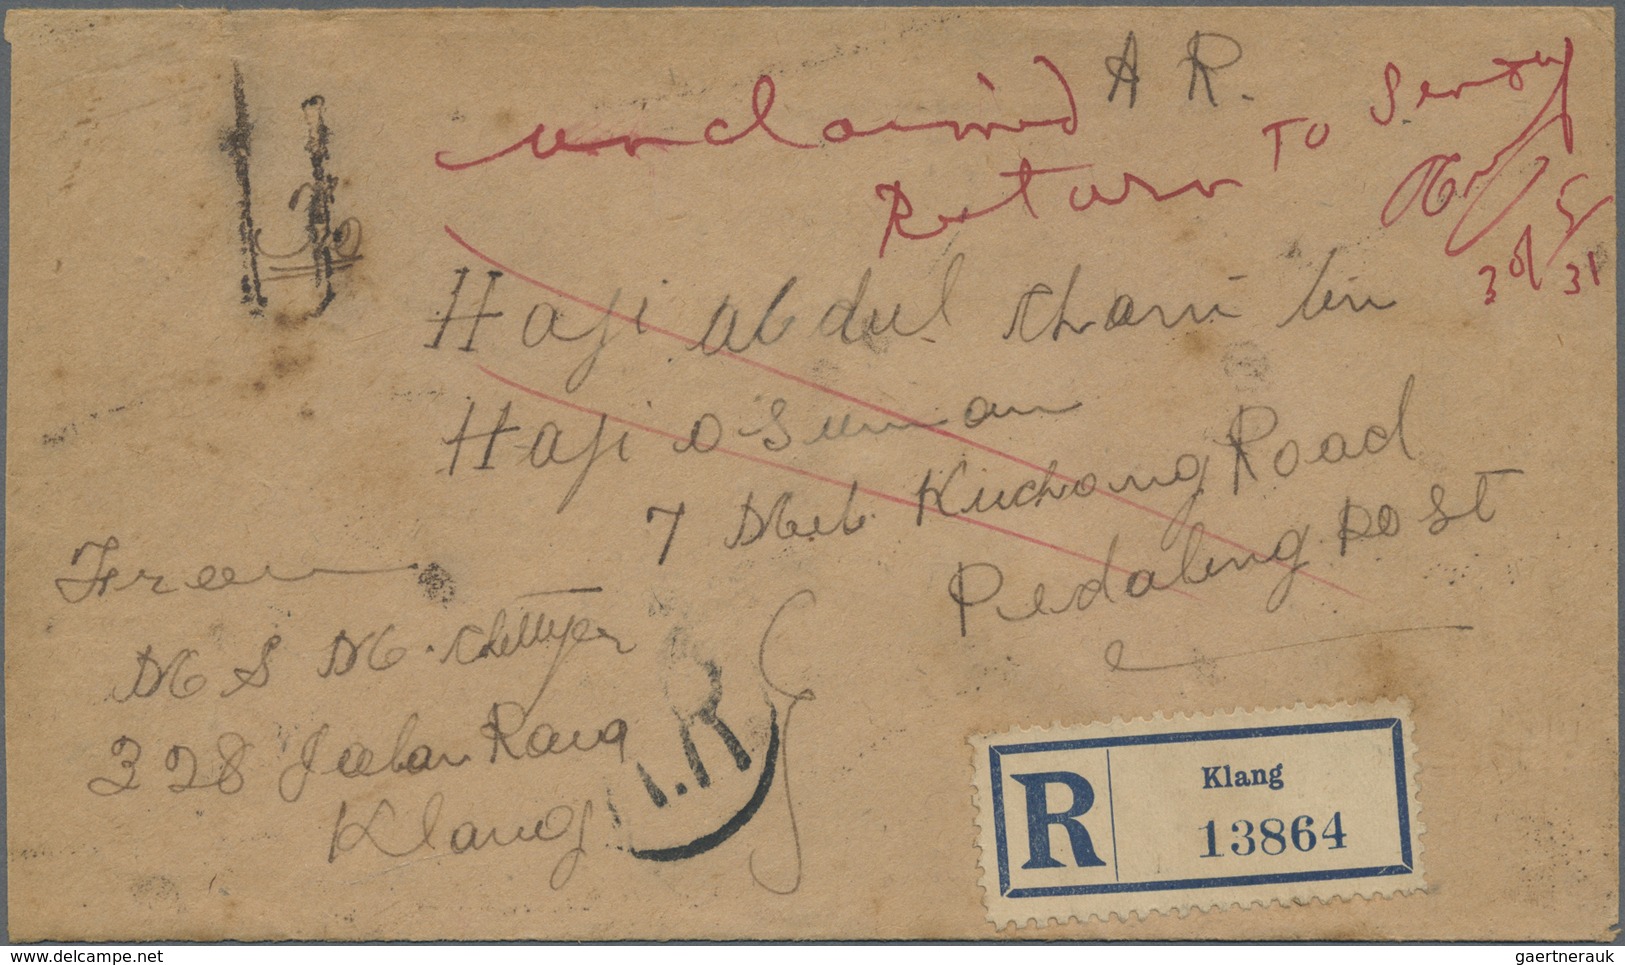 A R.
unclaimed
Return To Sender
30/5/31
Haji Abdul Ghani bin
Haji Osuman
7 Mel. Kuchong Road
Pedaling Post
From
M S M. Chettyar
328 Jalan Rang
Klang
A.R
R
Klang
13864
www.delcampe.net
gaertnerauk